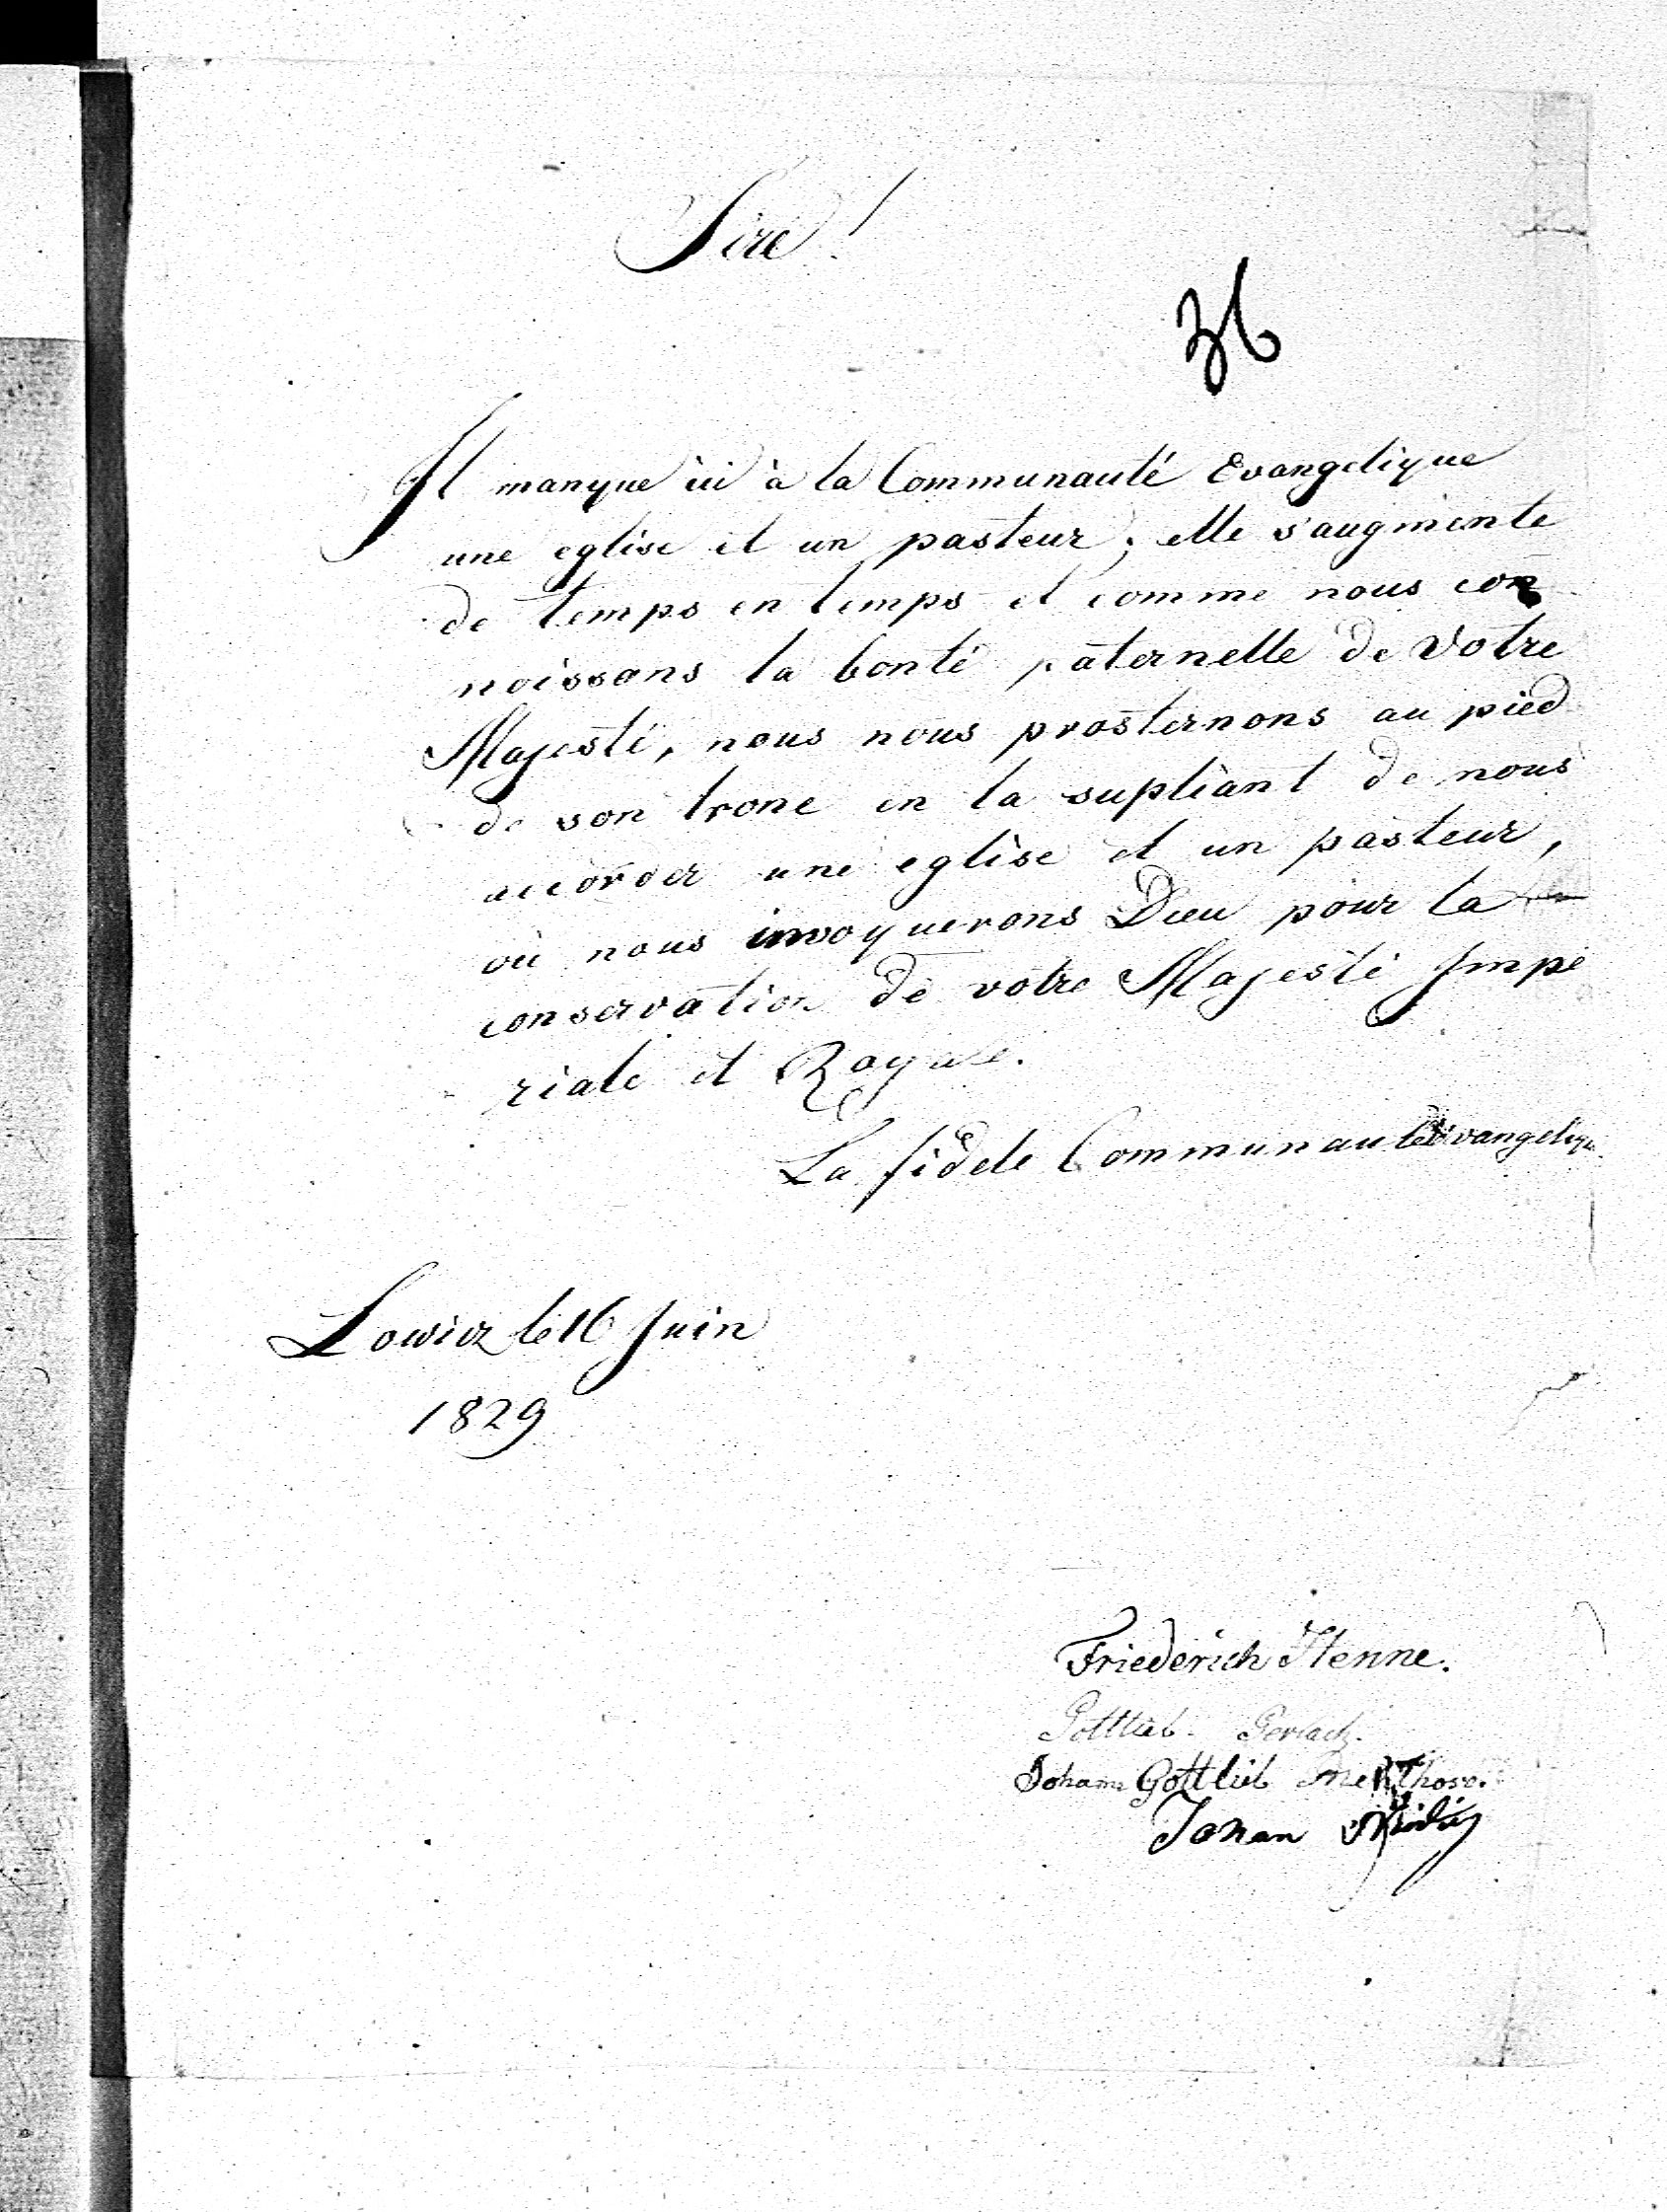 Sire!
36
Il manque ici à la Communauté Evangelique
une eglise et un pasteur; elle s'augmente
de temps en temps et comme nous con
noissons la bonté paternelle de Votre
Majesté, nous nous prosternons au pied
de son trone en la supliant de nous
accorder une eglise et un pasteur,
où nous invoquerons Dieu pour la
conservation de votre Majesté Impe
riale et Royale.
La fidele Communauté Evangelique
Lowicz le 16 Juin
1829
Friederich Henne.
Gottlieb Gerlach.
Johann Gottlieb
Johan